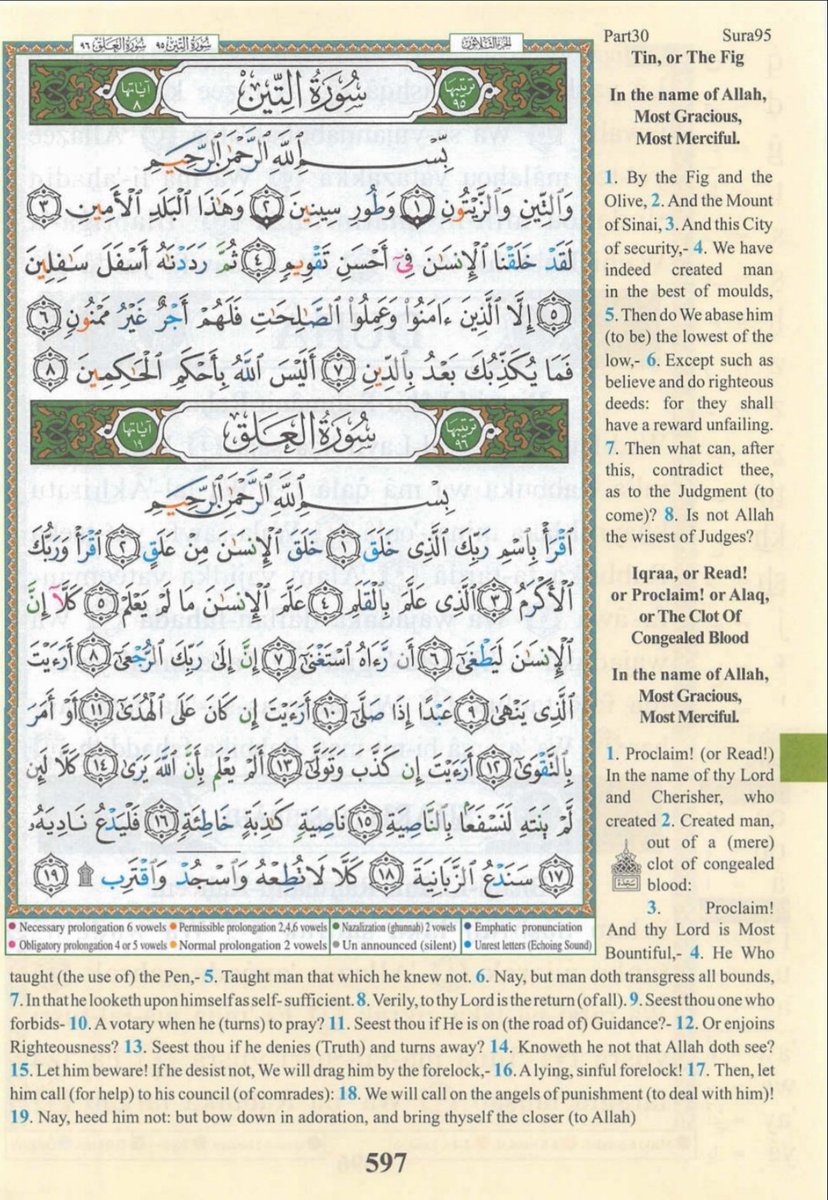 سُورَةُ التِّينِ ٩٥ سُورَةُ العَلَقِ ٩٦
الجُزءُ الثَّلَاثُونَ
Part30 Sura95
Tin, or The Fig
In the name of Allah,
Most Gracious,
Most Merciful.
1. By the Fig and the
Olive, 2. And the Mount
of Sinai, 3. And this City
of security,- 4. We have
indeed created man
in the best of moulds,
5. Then do We abase him
(to be) the lowest of the
low,- 6. Except such as
believe and do righteous
deeds: for they shall
have a reward unfailing.
7. Then what can, after
this, contradict thee,
as to the Judgment (to
come)? 8. Is not Allah
the wisest of Judges?
Iqraa, or Read!
or Proclaim! or Alaq,
or The Clot Of
Congealed Blood
In the name of Allah,
Most Gracious,
Most Merciful.
1. Proclaim! (or Read!)
In the name of thy Lord
and Cherisher, who
created 2. Created man,
out of a (mere)
clot of congealed
blood:
سجدة
3. Proclaim!
And thy Lord is Most
Bountiful,- 4. He Who
ترتيبها ٩٥ سُورَةُ التِّينِ آياتها ٨
بِسْمِ ٱللَّهِ ٱلرَّحْمَٰنِ ٱلرَّحِيمِ
وَٱلتِّينِ وَٱلزَّيْتُونِ ١ وَطُورِ سِينِينَ ٢ وَهَٰذَا ٱلْبَلَدِ ٱلْأَمِينِ ٣
لَقَدْ خَلَقْنَا ٱلْإِنسَٰنَ فِىٓ أَحْسَنِ تَقْوِيمٍ ٤ ثُمَّ رَدَدْنَٰهُ أَسْفَلَ سَٰفِلِينَ
٥ إِلَّا ٱلَّذِينَ ءَامَنُوا۟ وَعَمِلُوا۟ ٱلصَّٰلِحَٰتِ فَلَهُمْ أَجْرٌ غَيْرُ مَمْنُونٍ ٦
فَمَا يُكَذِّبُكَ بَعْدُ بِٱلدِّينِ ٧ أَلَيْسَ ٱللَّهُ بِأَحْكَمِ ٱلْحَٰكِمِينَ ٨
ترتيبها ٩٦ سُورَةُ العَلَقِ آياتها ١٩
بِسْمِ ٱللَّهِ ٱلرَّحْمَٰنِ ٱلرَّحِيمِ
ٱقْرَأْ بِٱسْمِ رَبِّكَ ٱلَّذِى خَلَقَ ١ خَلَقَ ٱلْإِنسَٰنَ مِنْ عَلَقٍ ٢ ٱقْرَأْ وَرَبُّكَ
ٱلْأَكْرَمُ ٣ ٱلَّذِى عَلَّمَ بِٱلْقَلَمِ ٤ عَلَّمَ ٱلْإِنسَٰنَ مَا لَمْ يَعْلَمْ ٥ كَلَّآ إِنَّ
ٱلْإِنسَٰنَ لَيَطْغَىٰٓ ٦ أَن رَّءَاهُ ٱسْتَغْنَىٰٓ ٧ إِنَّ إِلَىٰ رَبِّكَ ٱلرُّجْعَىٰٓ ٨ أَرَءَيْتَ
ٱلَّذِى يَنْهَىٰ ٩ عَبْدًا إِذَا صَلَّىٰٓ ١٠ أَرَءَيْتَ إِن كَانَ عَلَى ٱلْهُدَىٰٓ ١١ أَوْ أَمَرَ
بِٱلتَّقْوَىٰٓ ١٢ أَرَءَيْتَ إِن كَذَّبَ وَتَوَلَّىٰٓ ١٣ أَلَمْ يَعْلَم بِأَنَّ ٱللَّهَ يَرَىٰ ١٤ كَلَّا لَئِن
لَّمْ يَنتَهِ لَنَسْفَعًۢا بِٱلنَّاصِيَةِ ١٥ نَاصِيَةٍ كَٰذِبَةٍ خَاطِئَةٍ ١٦ فَلْيَدْعُ نَادِيَهُۥ
١٧ سَنَدْعُ ٱلزَّبَانِيَةَ ١٨ كَلَّا لَا تُطِعْهُ وَٱسْجُدْ وَٱقْتَرِب ۩ ١٩
Necessary prolongation 6 vowels Permissible prolongation 2,4,6 vowels Nazalization (ghunnah) 2 vowels Emphatic pronunciation
Obligatory prolongation 4 or 5 vowels Normal prolongation 2 vowels Un announced (silent) Unrest letters (Echoing Sound)
taught (the use of) the Pen,- 5. Taught man that which he knew not. 6. Nay, but man doth transgress all bounds,
7. In that he looketh upon himself as self- sufficient. 8. Verily, to thy Lord is the return (of all). 9. Seest thou one who
forbids- 10. A votary when he (turns) to pray? 11. Seest thou if He is on (the road of) Guidance?- 12. Or enjoins
Righteousness? 13. Seest thou if he denies (Truth) and turns away? 14. Knoweth he not that Allah doth see?
15. Let him beware! If he desist not, We will drag him by the forelock,- 16. A lying, sinful forelock! 17. Then, let
him call (for help) to his council (of comrades): 18. We will call on the angels of punishment (to deal with him)!
19. Nay, heed him not: but bow down in adoration, and bring thyself the closer (to Allah)
597